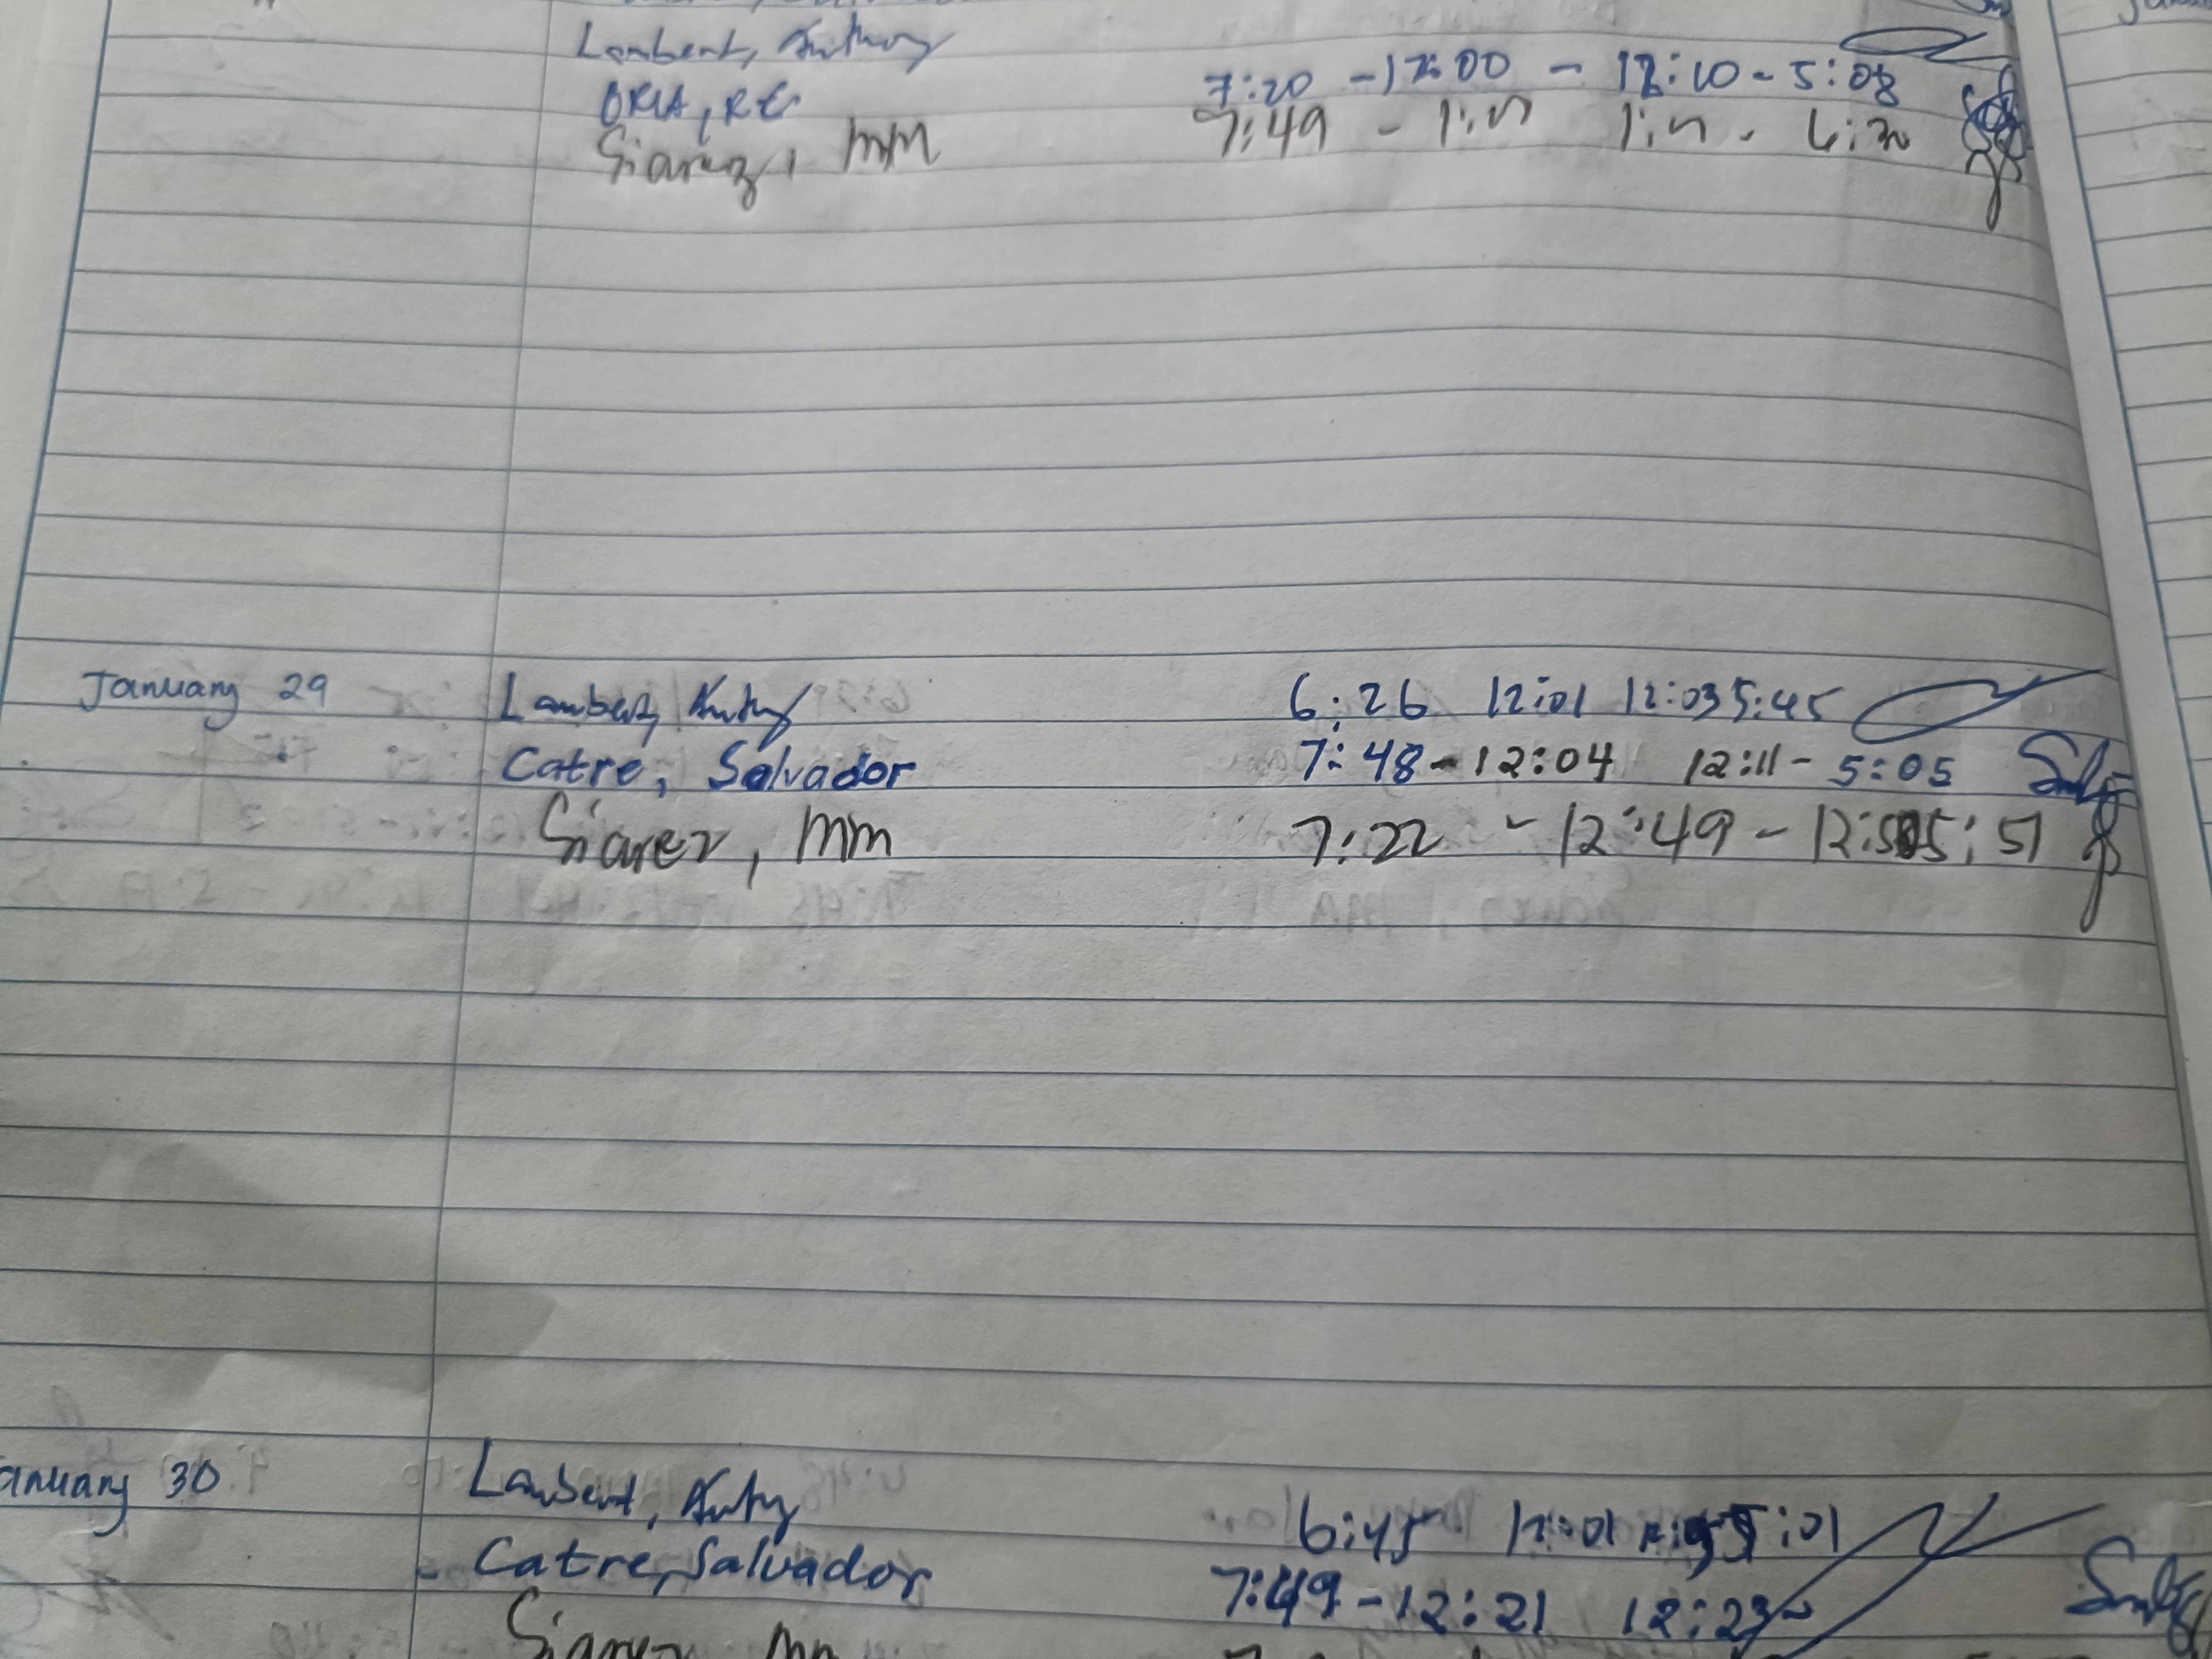 Lambert, Anthony
ORIA, RC 7:20 - 12:00 - 12:10 - 5:08
Siarez, MM 7:49 - 1:17 1:17 - 6:30
January 29 Lambert, Anthony 6:26 12:01 12:03 5:45
Catre, Salvador 7:48 - 12:04 12:11 - 5:05
Siarez, MM 7:22 - 12:49 - 12:50 5:51
January 30 Lambert, Anthony 6:45 12:01 5:01
Catre, Salvador 7:49 - 12:21 12:23 -
Siarez, MM